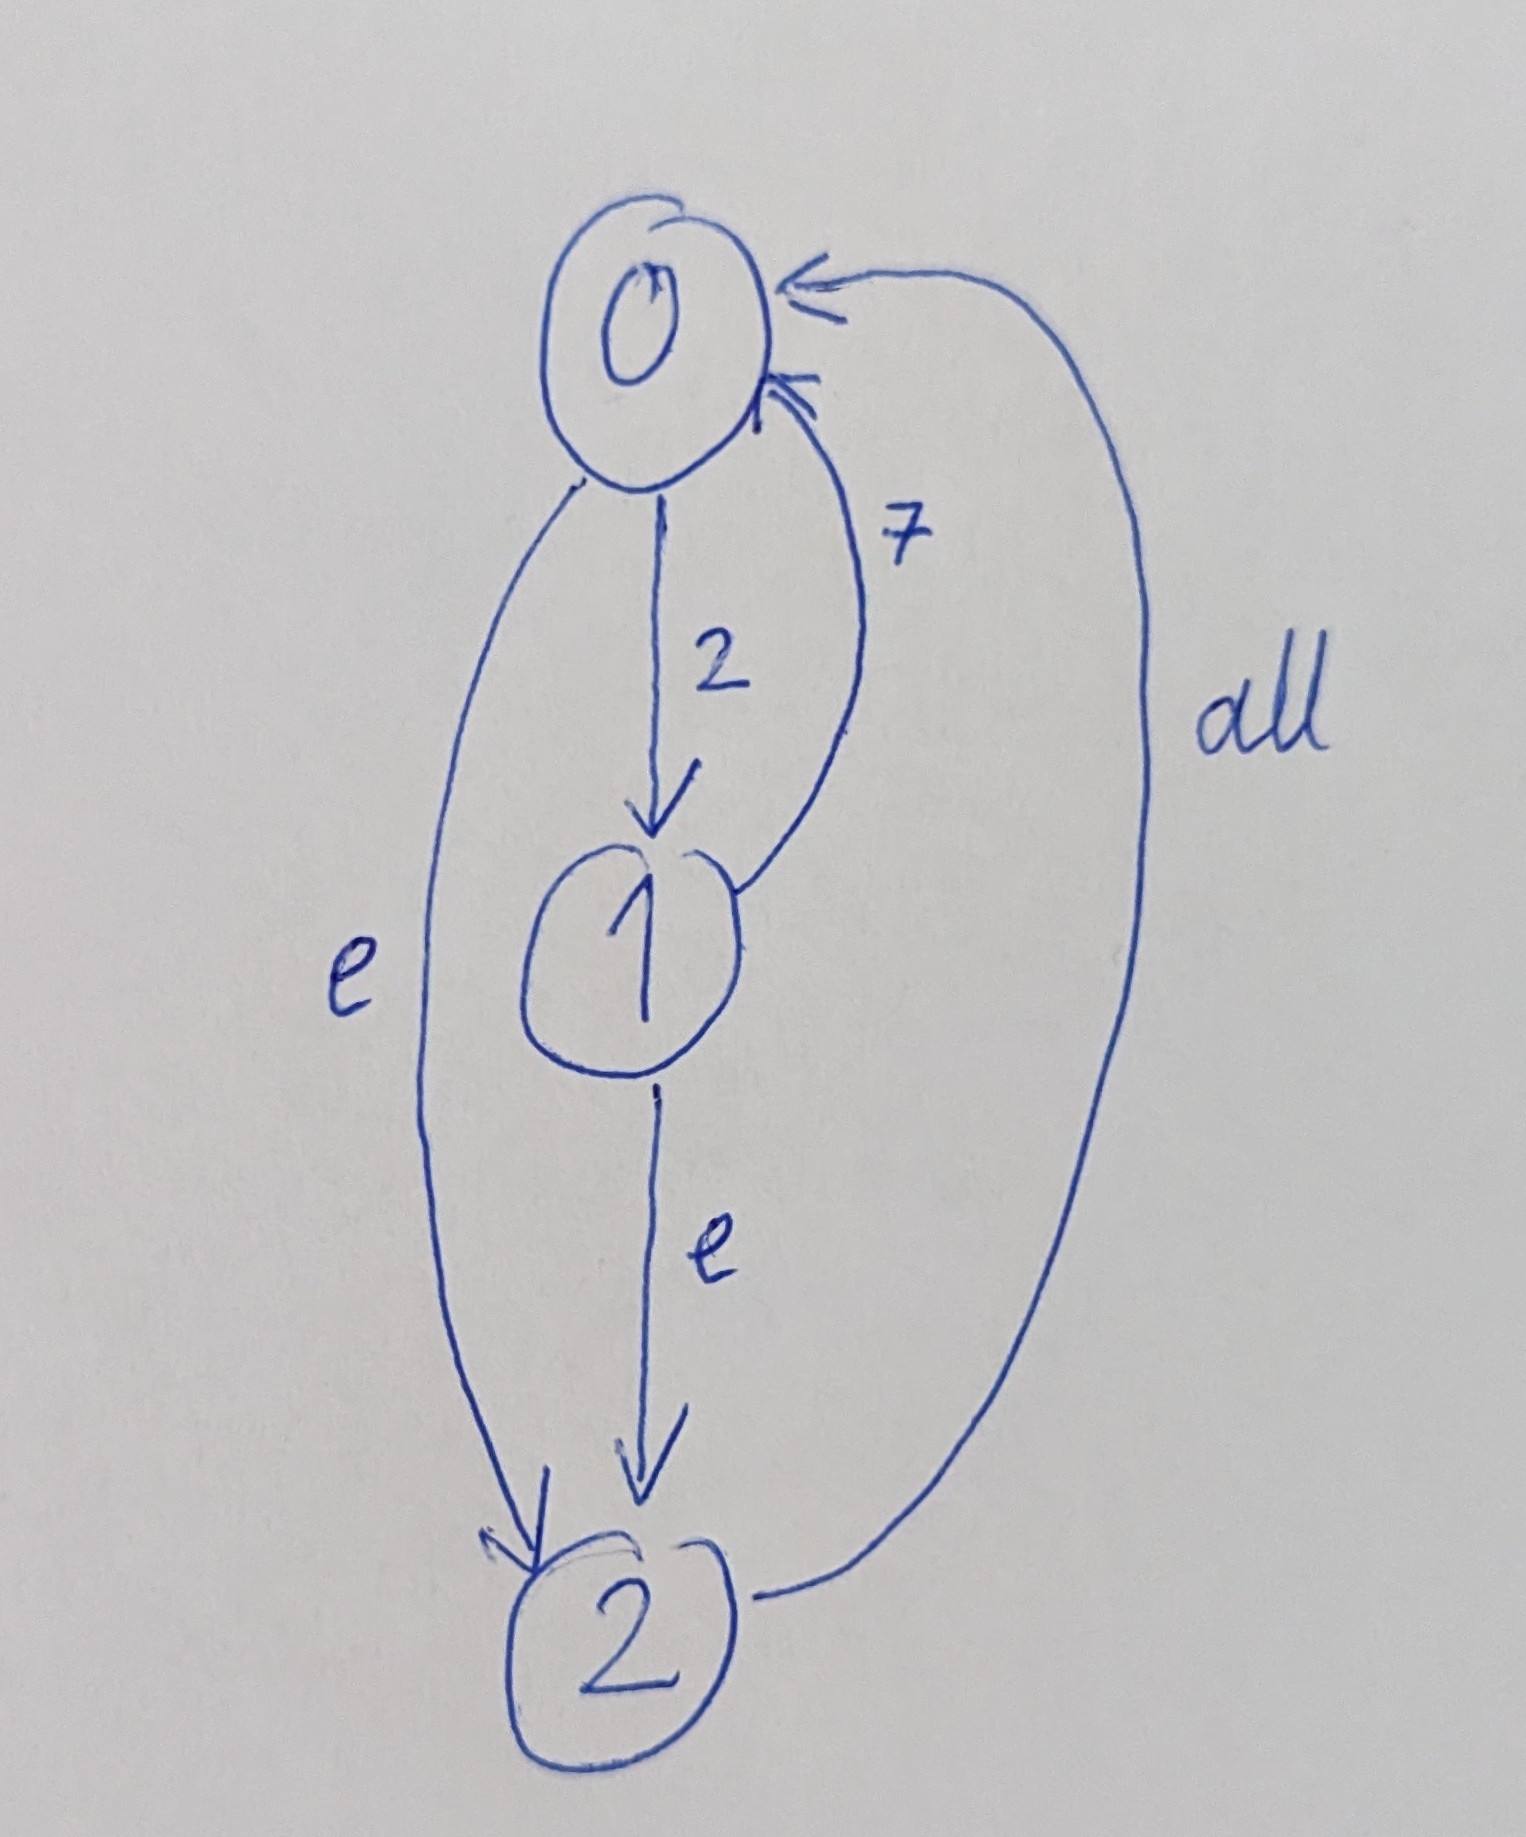 0
7
2
all
1
e
e
2